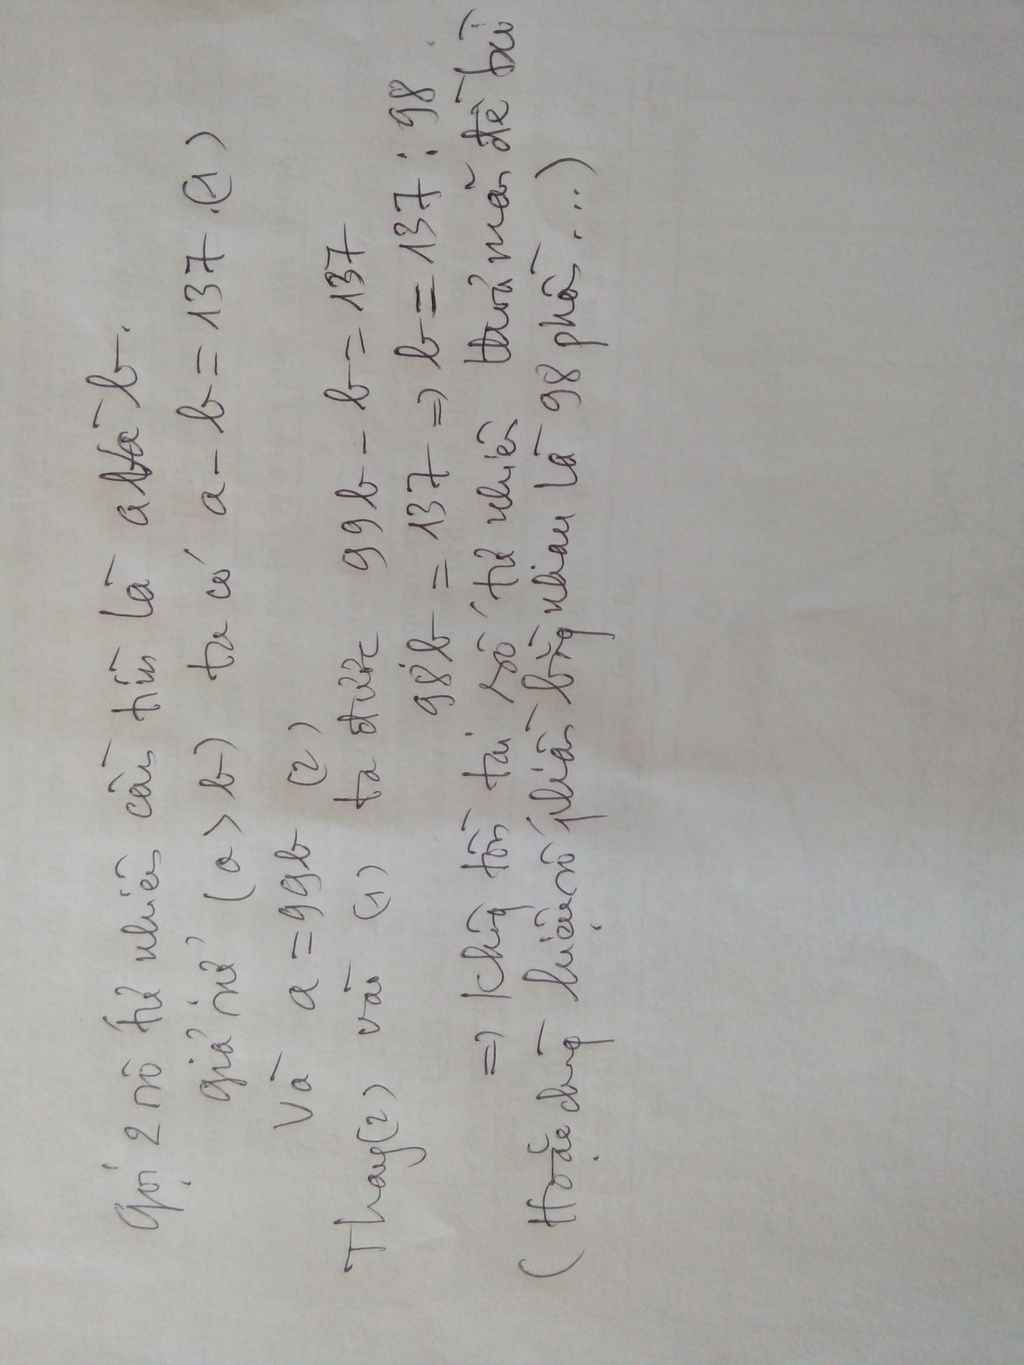 Gọi 2 số tự nhiên cần tìm là a và b.
giả sử (a > b) ta có a - b = 137 (1)
Và a = 99b (2)
Thay (2) vào (1) ta được 99b - b = 137
98b = 137 => b = 137 : 98
=> không tồn tại số tự nhiên thoả mãn đề bài
(Hoặc dùng hiệu số phần bằng nhau là 98 phần...)